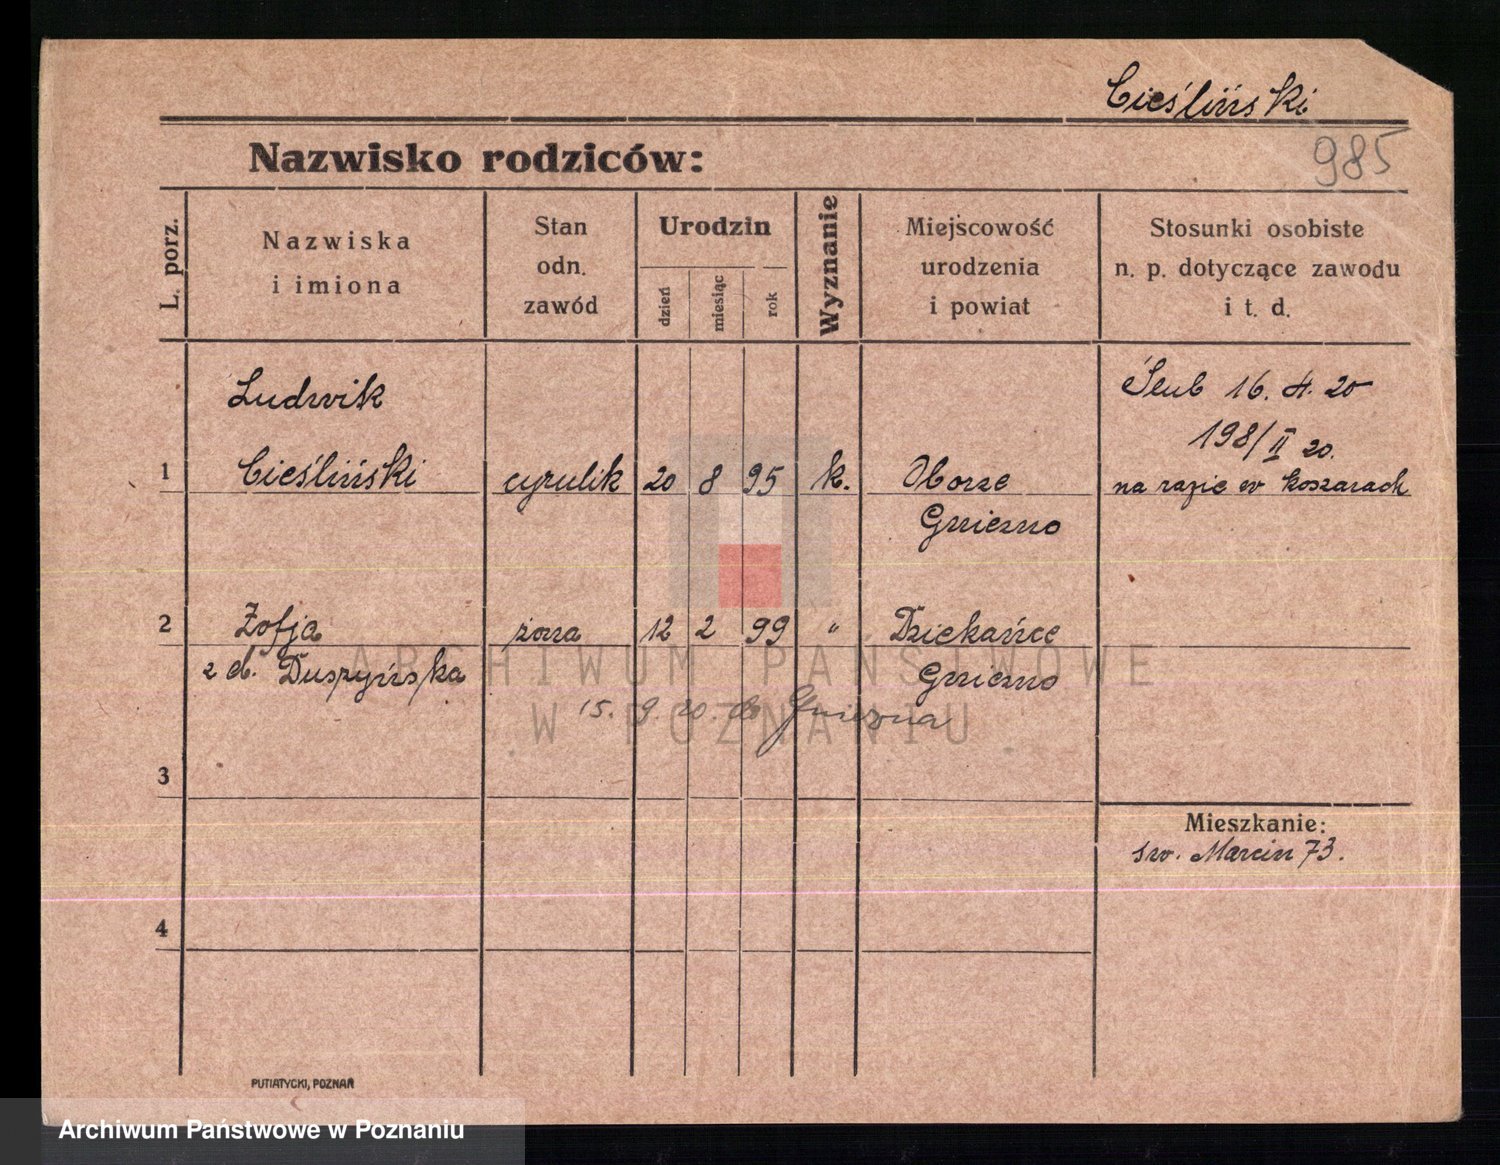 Cieśliński
985
Nazwisko rodziców:
L. porz.
Nazwiska
i imiona
Stan
odn.
zawód
Urodzin
dzień
miesiąc
rok
Wyznanie
Miejscowość
urodzenia
i powiat
Stosunki osobiste
n. p. dotyczące zawodu
i t. d.
Ludwik
Ślub 16. 4. 20
198/II 20.
1 Cieśliński cyrulik 20 8 95 k. Oborze na razie w koszarach
Gniezno
2 Zofja żona 12 2 99 " Dziekańce
z d. Duszyńska Gniezno
15. 9. 20. do Gniezna
3
Mieszkanie:
św. Marcin 73.
4
PUTIATYCKI, POZNAŃ
ARCHIWUM PAŃSTWOWE
W POZNANIU
Archiwum Państwowe w Poznaniu